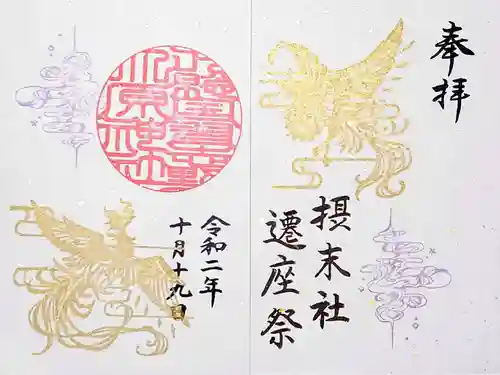 奉拝
摂末社
遷座祭
令和二年
十月十九日